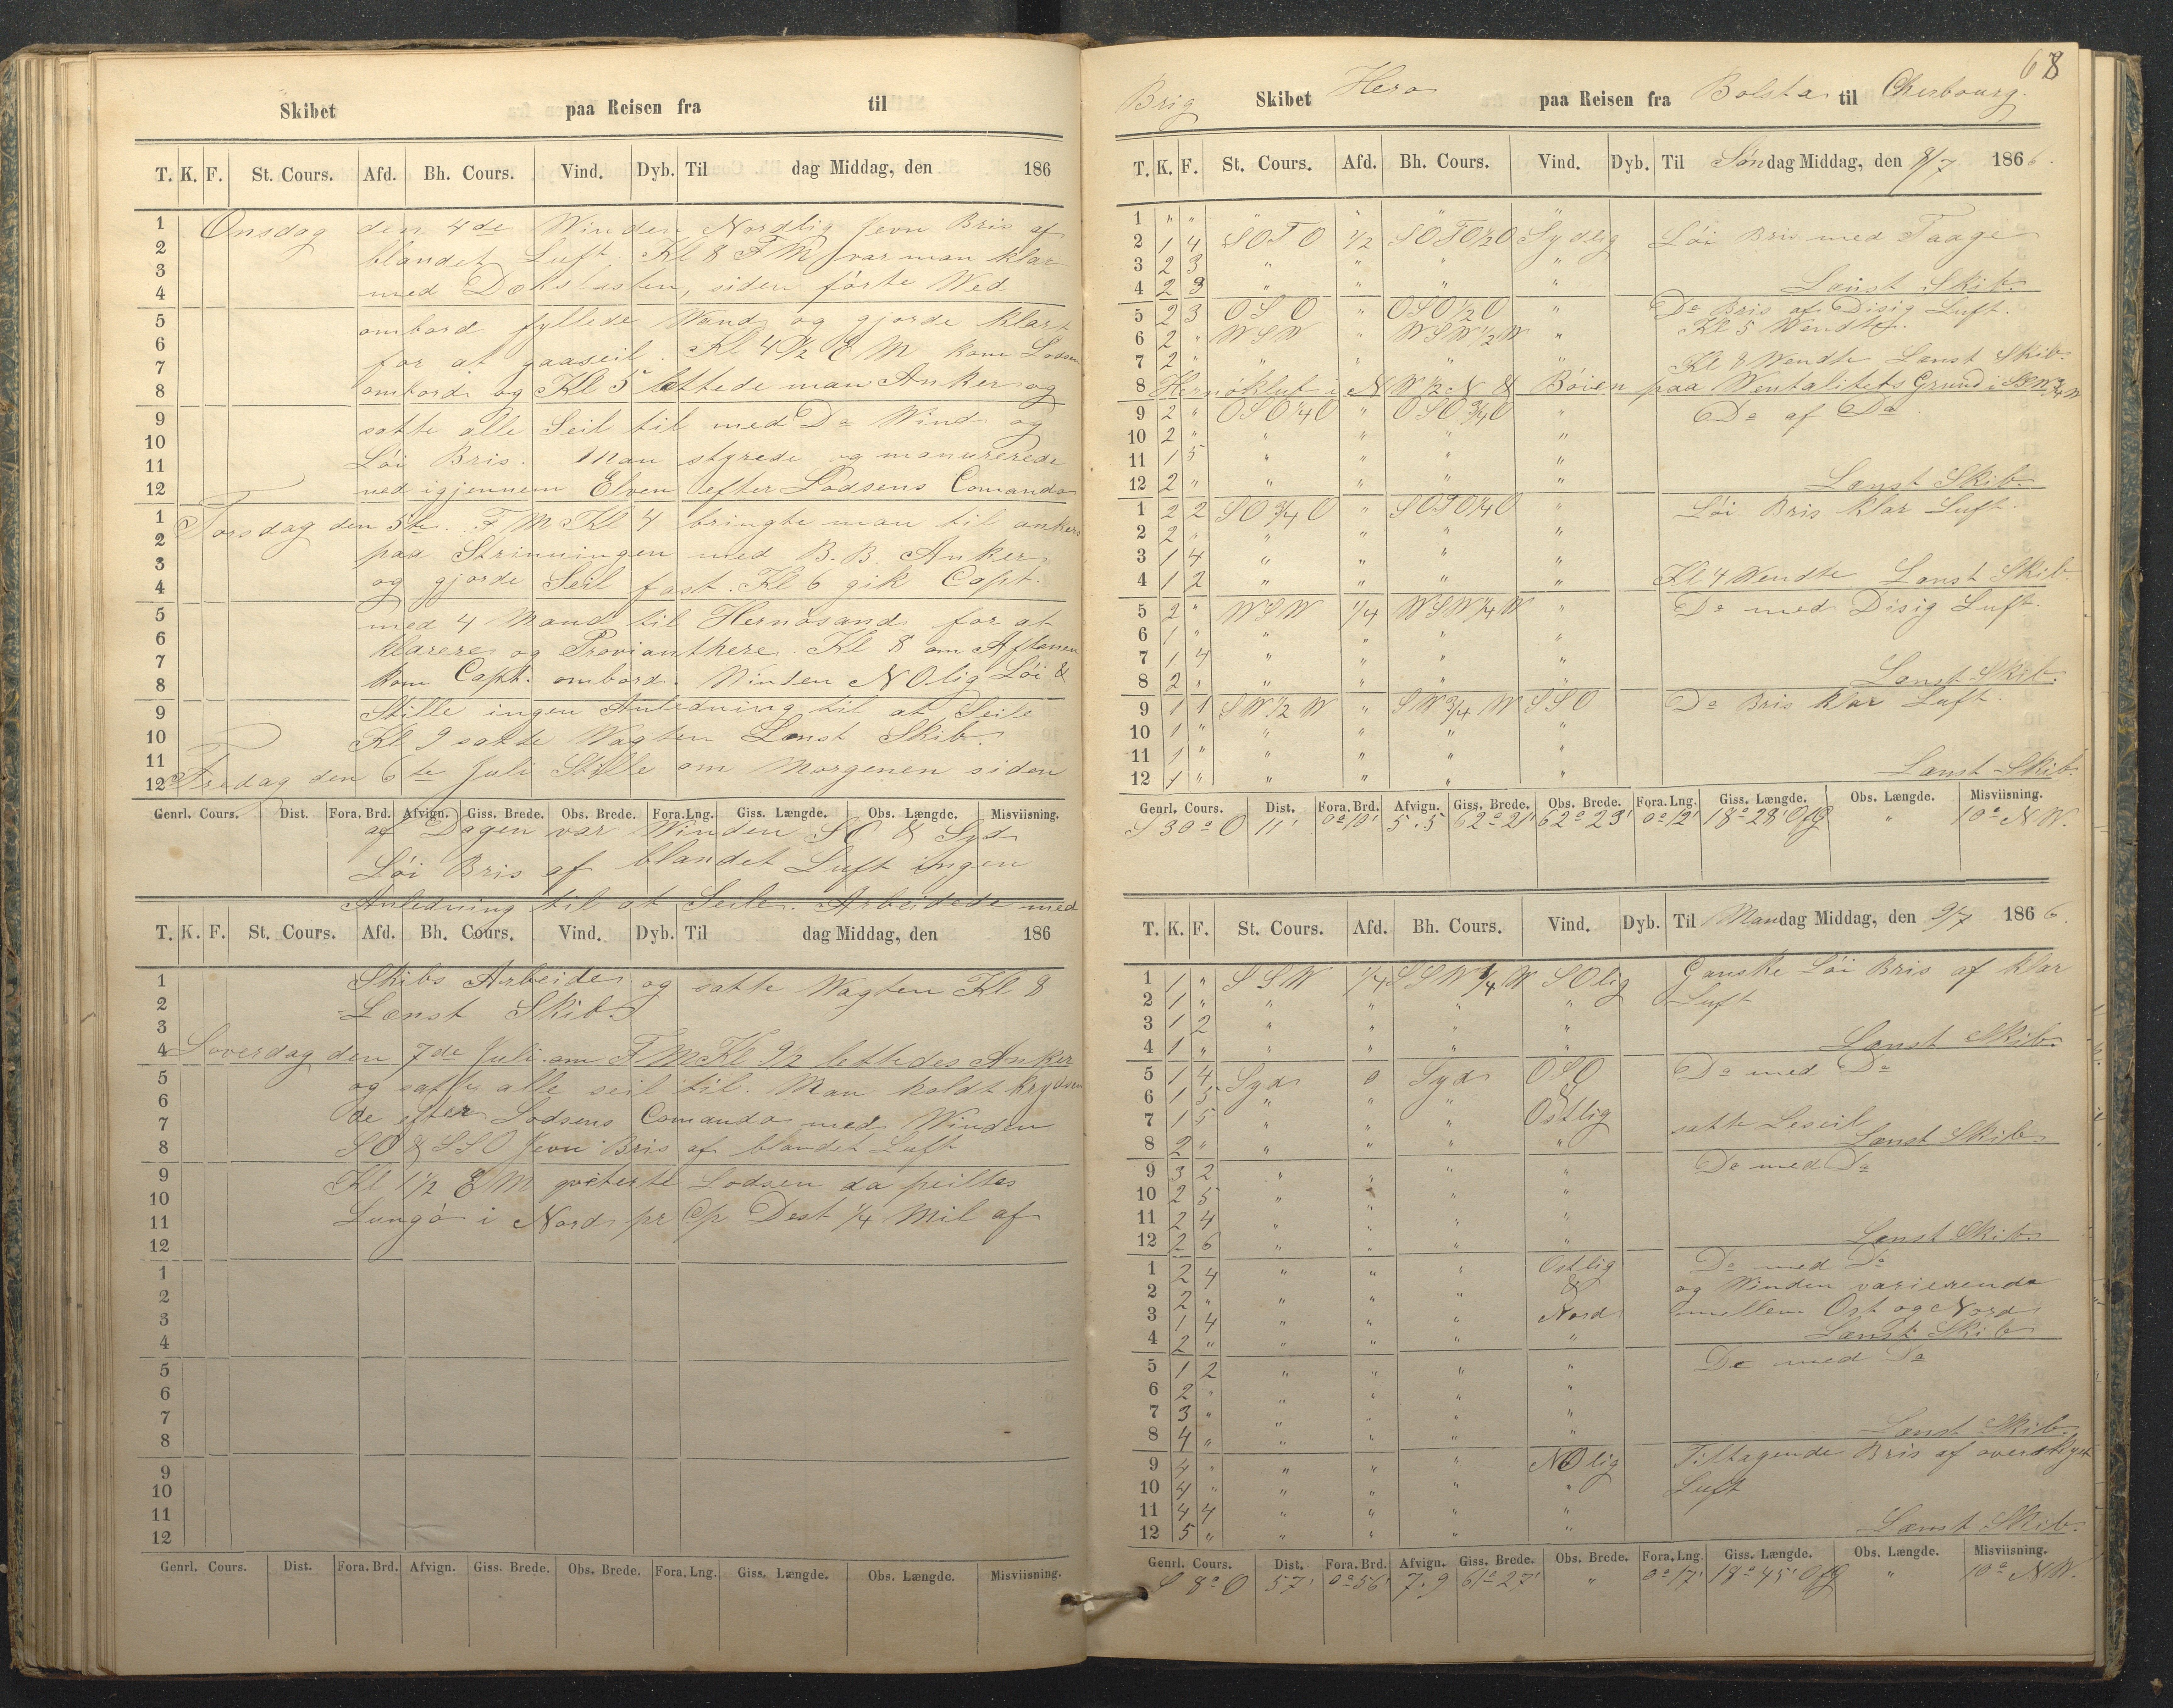 Skibet paa Reisen fra til
T. K. F. St. Cours. Afd. Bh. Cours. Vind. Dyb. Til dag Middag, den 186
Onsdag den 4de Winden Nordlig Jevn Bris af
blandet Luft. Kl 8 F M var man klar
med Dækslasten, siden förte Wed
ombord fyllede Wand og gjorde klart
for at gaaseil. Kl 4 1/2 E M kom Lodsen
ombord og Kl 5 lettede man Anker og
satte alle Seil til med Do Wind og
Löi Bris. Man styrede og manurerede
ned igjennem Elven efter Lodsens Comando
Torsdag den 5te. F M Kl 4 bringte man til ankers
paa Strinningen med B. B. Anker
og gjorde Seil fast. Kl 6 gik Capt.
med 4 Mand til Hernösand for at
klarere og Provianthere. Kl 8 om Aftenen
kom Capt. ombord. Winden N Olig Löi &
Stille ingen Anledning til at Seile
Kl 9 satte Wagten Lænst Skib.
Fredag den 6te Juli Stille om Morgenen siden
Genrl. Cours. Dist. Fora. Brd. Afvign. Giss. Brede. Obs. Brede. Fora. Lng. Giss. Længde. Obs. Længde. Misviisning.
af Dagen var Winden S O & Syd
Löi Bris af blandet Luft ingen
Anledning til at Seile. Arbeidede med
T. K. F. St. Cours. Afd. Bh. Cours. Vind. Dyb. Til dag Middag, den 186
Skibs Arbeide og satte Wagten Kl 8
Lænst Skib.
Loverdag den 7de Juli om F M Kl 9 1/2 lettedes Anker
og satte alle seil til. Man holdt krydsen
de efter Lodsens Comando med Winden
S O & S S O Jevn Bris af blandet Luft
Kl 1 1/2 E M qviterte Lodsen da peiltes
Lungö i Nord pr C/p Dest 1/4 Mil af
Genrl. Cours. Dist. Fora. Brd. Afvign. Giss. Brede. Obs. Brede. Fora. Lng. Giss. Længde. Obs. Længde. Misviisning.
68
Brig Skibet Hero paa Reisen fra Bolsta til Cherbourg.
T. K. F. St. Cours. Afd. Bh. Cours. Vind. Dyb. Til Söndag Middag, den 8/7 1866.
1 " " " " " "
2 1 4 S O T O 1/2 S O T O 1/2 O Sydlig Löi Bris med Taage
3 2 3 " " " "
4 2 3 " " " " Lænst Skib
5 2 3 O S O " O S O 1/2 O " Do Bris af Disig Luft.
6 2 " W S W " W S W 1/2 W " Kl 5 Wendte.
7 2 " " " " " Kl 8 Wendte Lænst Skib.
8 Hernöklut i N W 1/2 N & Böien paa Wentalitets Grund i S W 3/4 W
9 2 " O S O 1/4 O " O S O 3/4 O " Do af Do
10 2 " " " " "
11 1 5 " " " "
12 2 " " " " " Lænst Skib.
1 2 2 S O 3/4 O " S O T O 1/4 O " Löi Bris klar Luft.
2 2 " " " " "
3 1 4 " " " "
4 1 2 " " " " Kl 4 Wendte Lænst Skib.
5 2 " W S W 1/4 W S W 1/4 W " Do med Disig Luft.
6 1 " " " " "
7 1 4 " " " "
8 2 " " " " " Lænst Skib.
9 1 1 S W 1/2 W " S W 3/4 W S S O Do Bris klar Luft.
10 1 " " " " "
11 1 " " " " "
12 1 " " " " " Lænst Skib.
Genrl. Cours. Dist. Fora. Brd. Afvign. Giss. Brede. Obs. Brede. Fora. Lng. Giss. Længde. Obs. Længde. Misviisning.
S 30° O 11' 0° 10' 5.5 62° 21' 62° 23' 0° 12' 18° 28' Ofg " 10° N W.
T. K. F. St. Cours. Afd. Bh. Cours. Vind. Dyb. Til Mandag Middag, den 9/7 1866
1 1 " S S W 1/4 S S W 1/4 W S Olig Ganske Löi Bris af klar
2 1 " " " " " Luft
3 1 2 " " " "
4 1 " " " " " Lænst Skib.
5 1 4 Syd 0 Syd O S O Do med Do
6 1 5 " " " &
7 1 5 " " " Ostlig satte Leseil
8 2 " " " " " Lænst Skib.
9 3 2 " " " " Do med Do
10 2 5 " " " "
11 2 4 " " " "
12 2 6 " " " " Lænst Skib.
1 2 4 " " " Ostlig Do med Do
2 2 " " " " & og Winden varierende
3 1 4 " " " Nord mellem Ost og Nord
4 2 " " " " " Lænst Skib
5 1 2 " " " " Do med Do
6 2 " " " " "
7 3 " " " " "
8 4 " " " " " Lænst Skib.
9 4 " " " " N Olig Tiltagende Bris af overskyet
10 4 " " " " " Luft
11 4 4 " " " "
12 5 " " " " " Lænst Skib.
Genrl. Cours. Dist. Fora. Brd. Afvign. Giss. Brede. Obs. Brede. Fora. Lng. Giss. Længde. Obs. Længde. Misviisning.
S 8° O 57' 0° 56' 7.9 61° 27' " 0° 17' 18° 45' Ofg " 10° N W.